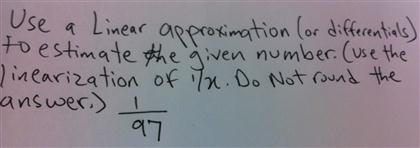 Use a Linear approximation (or differentials)
to estimate the given number. (use the
linearization of 1/x. Do Not round the
answer.) 1/97